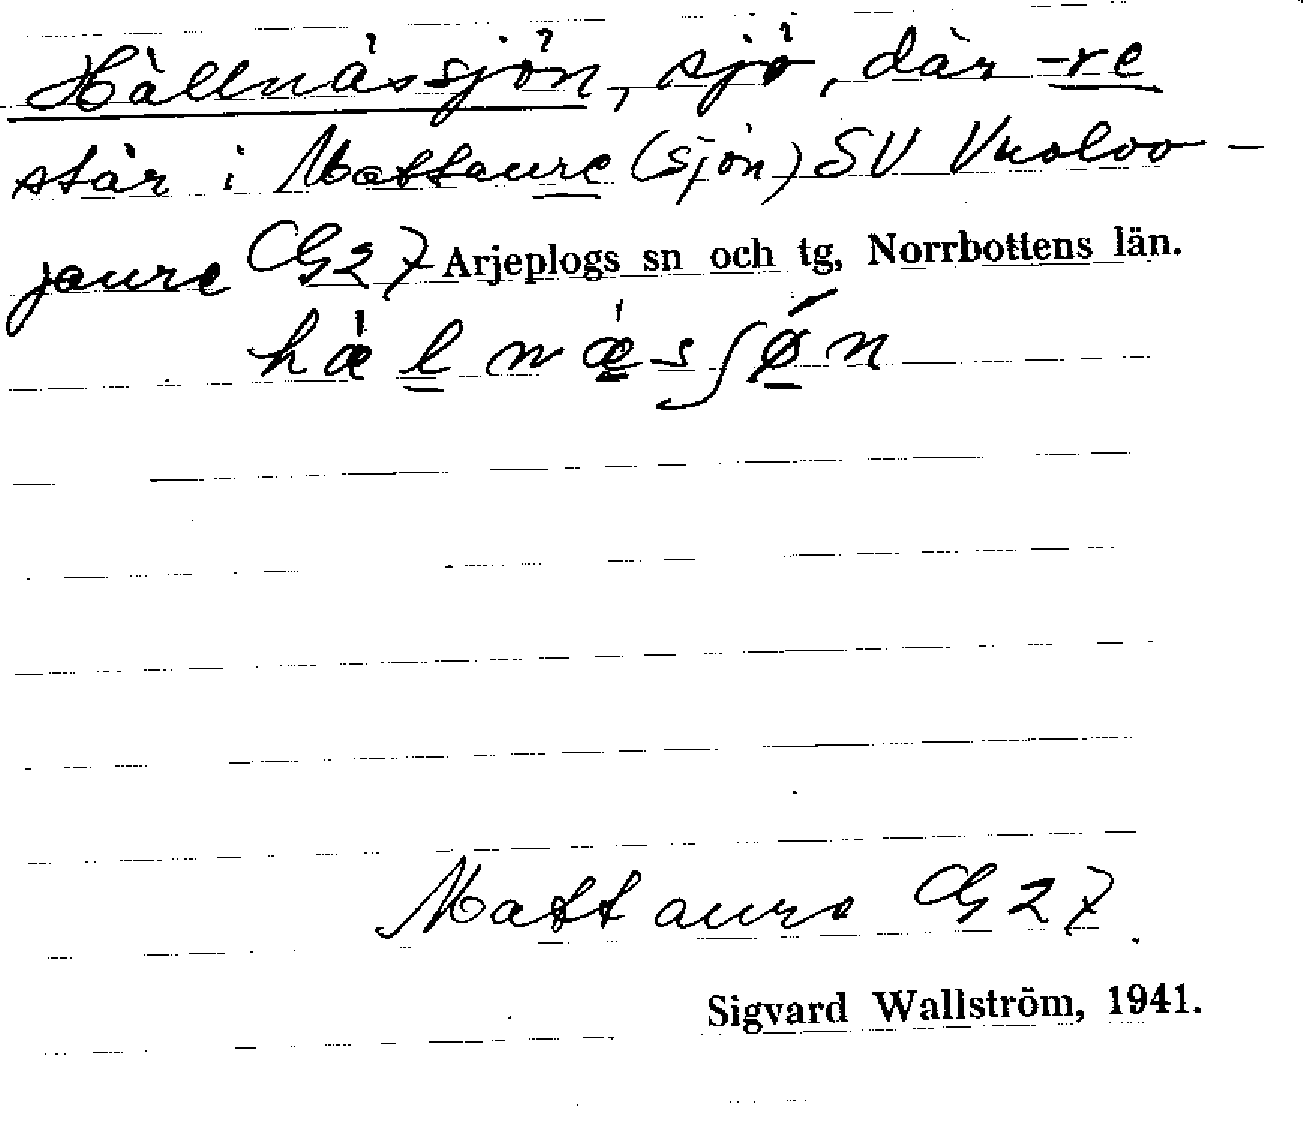 Hällnässjön, sjö, där -re
står i Mattaure (sjön) SV Vuolvo-
jaure G27 Arjeplogs sn och tg, Norrbottens län.
hælnæsʃøn
Mattaure G27
Sigvard Wallström, 1941.